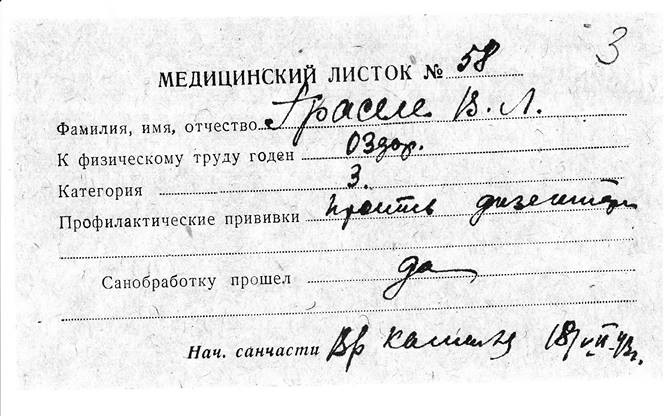 3
МЕДИЦИНСКИЙ ЛИСТОК № 58
Фамилия, имя, отчество Граселе В. Л.
К физическому труду годен Оздор.
Категория 3.
Профилактические прививки Против дизентери
Санобработку прошел да
Нач. санчасти Вр 18/VII-43г.